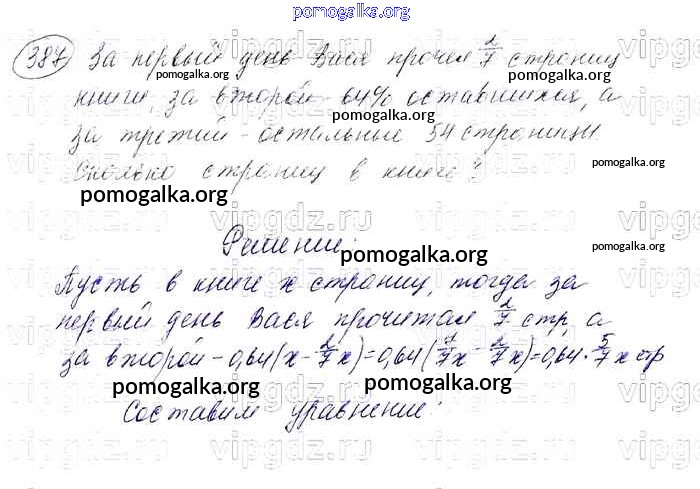 pomogalka.org
387 За первый день Вася прочел 2/7 страниц
pomogalka.org
книги, за второй - 64% оставшихся, а
pomogalka.org
за третий - остальные 54 страницы.
Сколько страниц в книге?
pomogalka.org
pomogalka.org
vipgdz.ru
Решение:
pomogalka.org
pomogalka.org
Пусть в книге х страниц, тогда за
первый день Вася прочитал 2/7 стр, а
pomogalka.org
за второй - 0,64(х - 2/7х) = 0,64(7/7х - 2/7х) = 0,64 · 5/7 х стр
pomogalka.org
pomogalka.org
Составим уравнение: